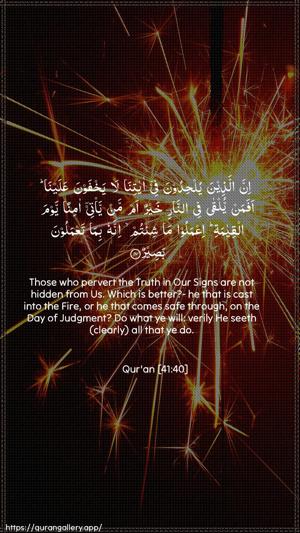 اِنَّ الَّذِيۡنَ يُلۡحِدُوۡنَ فِىۡۤ اٰيٰتِنَا لَا يَخۡفَوۡنَ عَلَيۡنَا ؕ
اَفَمَنۡ يُّلۡقٰى فِى النَّارِ خَيۡرٌ اَمۡ مَّنۡ يَّاۡتِىۡۤ اٰمِنًا يَّوۡمَ
الۡقِيٰمَةِ ؕ اِعۡمَلُوۡا مَا شِئۡتُمۡ ۙ اِنَّهٗ بِمَا تَعۡمَلُوۡنَ
بَصِيۡرٌ ﴿۴۰﴾
Those who pervert the Truth in Our Signs are not
hidden from Us. Which is better?- he that is cast
into the Fire, or he that comes safe through, on the
Day of Judgment? Do what ye will: verily He seeth
(clearly) all that ye do.
Qur'an [41:40]
https://qurangallery.app/